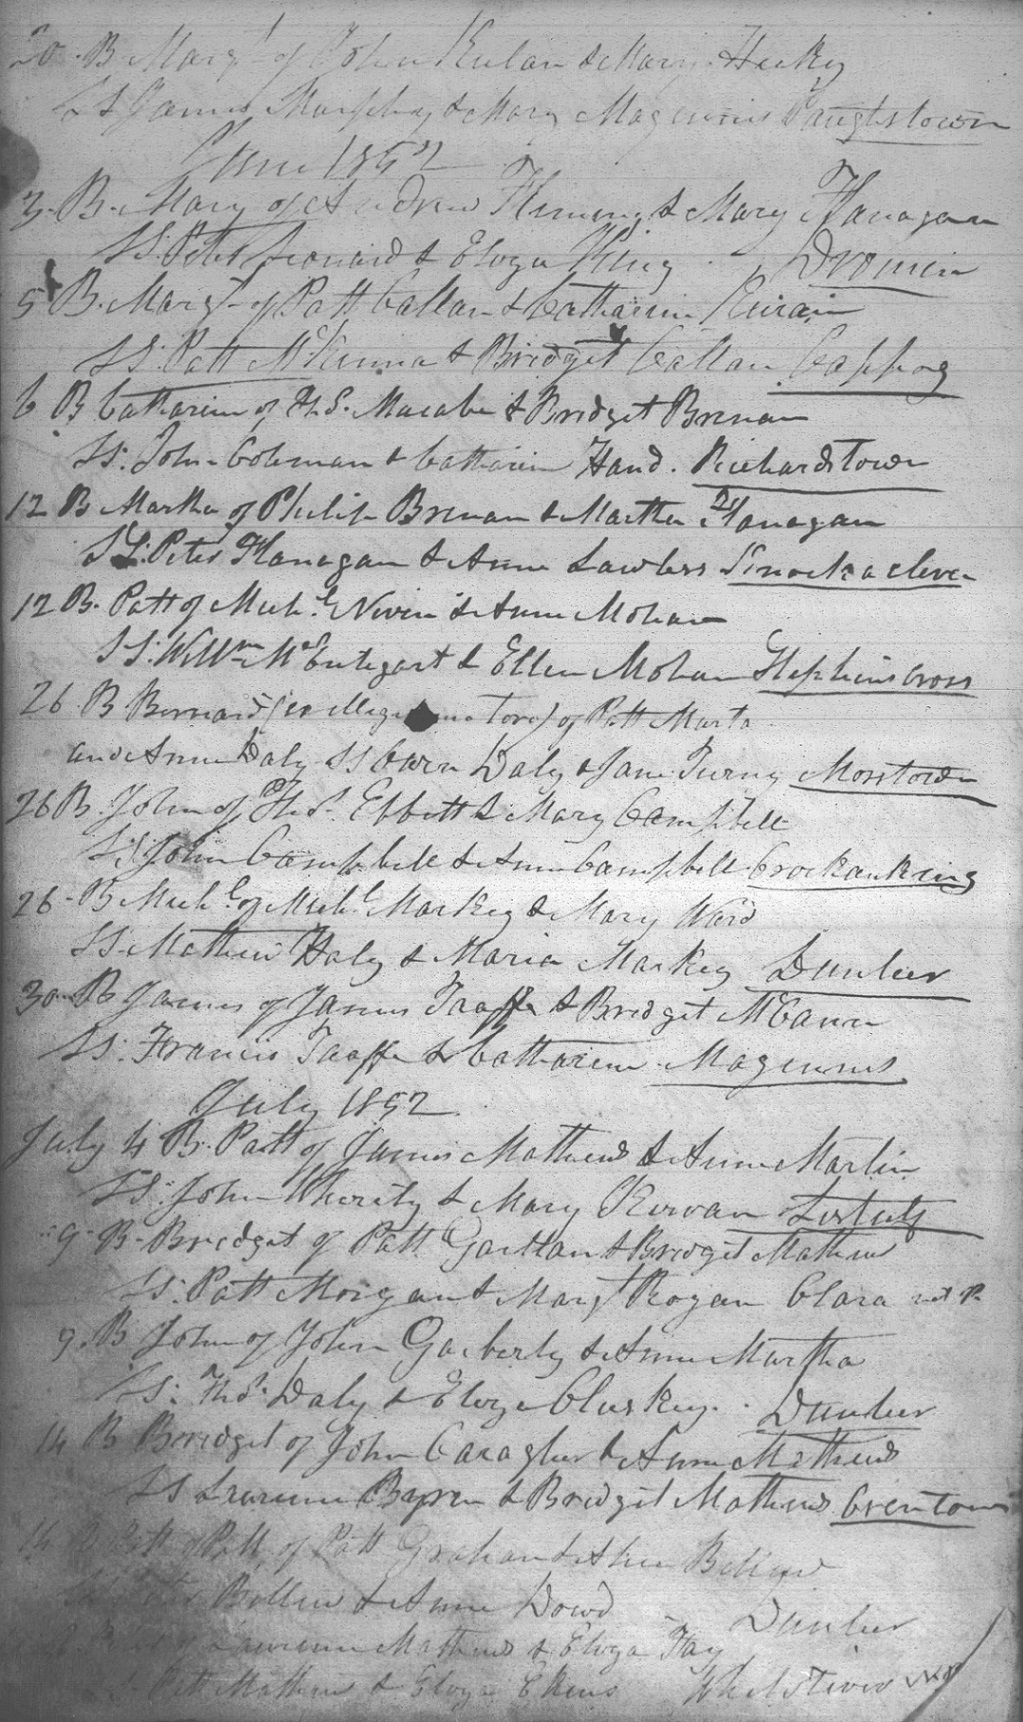 20. B Margt of John Kulan & Mary Heeky
SS James Murphy & Mary Magennis Paughstown
June 1852
3. B. Mary of Andrew Fleming & Mary Flanagan
SS: Peter Leonard & Eloza King Dromin
5 B. Margt of Patt Callan & Catharin Kirain
SS: Patt McKenna & Bridget Callan Cappog
6 B Catharin of Ths. Macabe & Bridget Brenan
SS: John Coleman & Catharin Hand. Richardstown
12 B Martha of Philip Brenan & Martha Flanagan
SS: Peter Flanagan & Anne Lawless Knockacleva
12 B. Patt of Michl Nivin & Anne Mohan
SS: Willm McEntegart & Ellen Mohan Stephens Cross
26 B Bernard (es illegematore) of Patt Murta
and Anne Daly SS Owen Daly & Jane Turny Mosstown
26 B. John of Thos. Ebbitt & Mary Campbell
SS John Campbell & Anne Campbell Crockanking
26. B Michl of Michl Markey & Mary Ward
SS. Mathew Haly & Maria Markey Dunleer
30. B James of James Taaffe & Bridget McCann
SS: Francis Taaffe & Catharine Magennis
July 1852
July 4 B. Patt of James Mathews & Anne Martin
SS: John Wherity & Mary Kirwan
9. B. Bridget of Patt Gartlan & Bridget Mathews
SS: Patt Morgan & Margt Rogan Clara
9. B John of John Gaeherty & Anne Murtha
SS: Thos. Daly & Eloza Cluskey. Dunleer
14 B Bridget of John Caragher & Anne Mathews
SS Laurence Byrn & Bridget Mathews Greentown
14 B Patt of Patt Graham & Alice Bellew
Bellew & Anne Dowd Dunleer
Laurence Mathews & Eloza Fay
Patt Mathews & Eloza Whiteriver